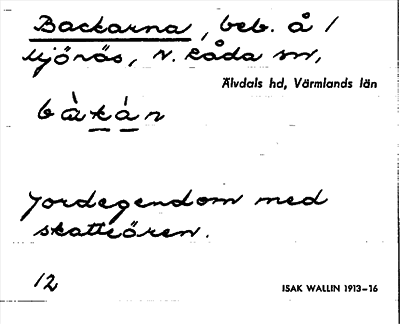 Backarna, beb. å /
Mjönäs, N. Råda sn,
Älvdals hd, Värmlands län
bàkán
Jordegendom med
skatteören.
12
ISAK WALLIN 1913–16